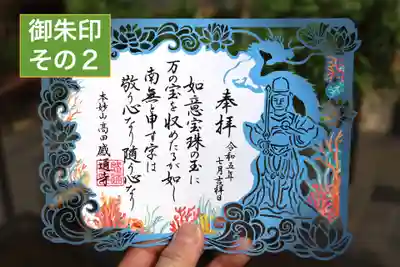 御朱印
その2
奉拝
令和五年
七月吉祥日
如意宝珠の玉に
万の宝を収めたるが如し
南無と申す字は
敬う心なり随う心なり
本妙山 高田 感通寺